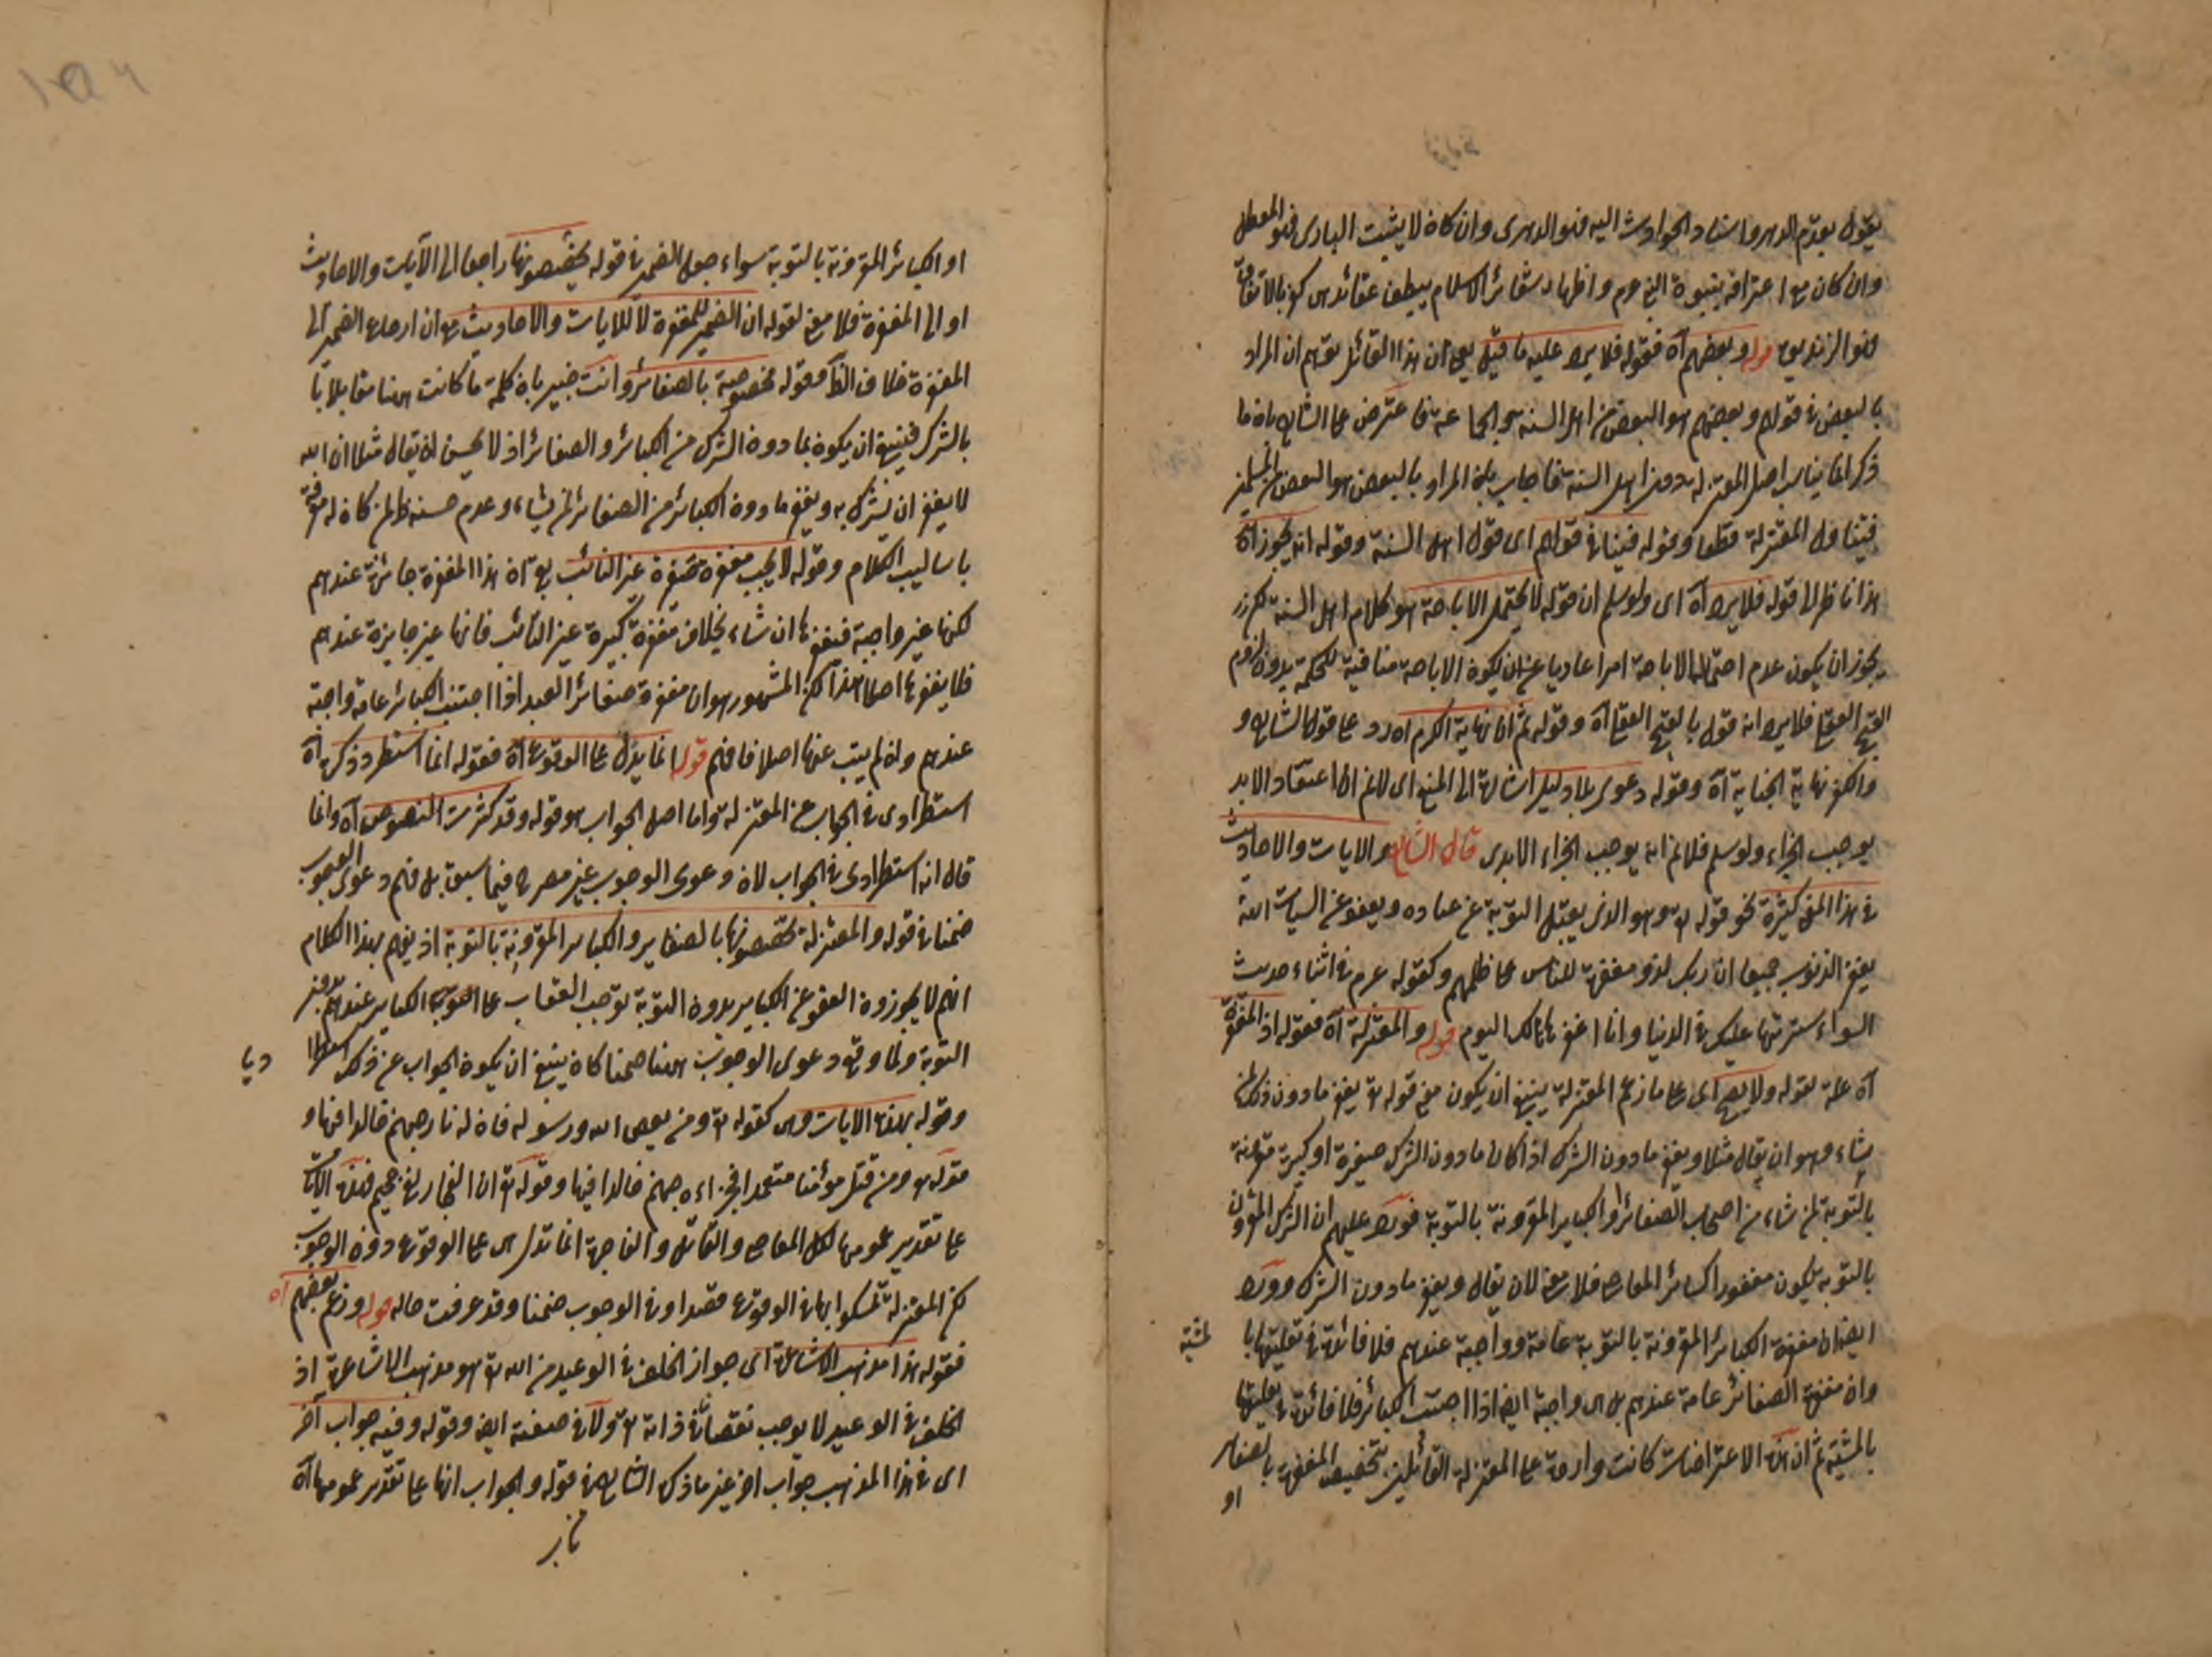 يقول بقدم الدهر واسناد الحوادث اليه فهو الدهرى وان كان لا يثبت البارى فهو المعطل
وان كان مع اعترافه بنبوة النبى عرم واظهار شعائر الاسلام يبطن عقائد هى كفر بالاتفاق
فهو الزنديق قوله وبعضهم آه فقوله فلا يرد عليه ما قيل يعنى ان هذا القائل توهم ان المراد
بالبعض فى قولهم وبعضهم هو البعض من اهل السنة والجماعة فاعترض على الشارح بان ما
ذكر انما يناسب اصل المعتزلة دون اهل السنة فاجاب بان المراد بالبعض هو البعض من المسلمين
فيتناول المعتزلة قطعا وقوله فينافى قولهم اى قول اهل السنة وقوله انه يجوز آه
هذا ناظر الى قوله فلا يرد آه اى ولو سلم ان قوله لا يحتمل الاباحة هو كلام اهل السنة لكن
يجوز ان يكون عدم احتمال الاباحة امرا عاديا عن ان يكون الاباحة منافية للحكمة بدون لزوم
القبح العقلى فلا يرد انه قول بالقبح العقلى آه وقوله ثم ان نهاية الكرم آه رد على قول الشارح و
والكفر نهاية الجناية آه وقوله دعوى بلا دليل اشارة الى المنع اى لا نم ان اعتقاد الابد
يوجب الجزاء ولو سلم فلا نم انه يوجب الجزاء الابدى قال الشارح والايات والاحاديث
فى هذا المعنى كثيرة نحو قوله تع وهو الذى يقبل التوبة عن عباده ويعفو عن السيات ان الله
يغفر الذنوب جميعا ان ربك لذو مغفرة للناس على ظلمهم وكقوله عرم فى اثناء حديث
السواء سترتها عليك فى الدنيا وانا اغفرها لك اليوم قوله والمعتزلة آه فقوله اذ المغفرة
آه علة لقوله ولا يصح اى على ما زعم المعتزلة ينبغى ان يكون معنى قوله تع يغفر ما دون ذلك لمن
يشاء وهو ان يقال مثلا ويغفر ما دون الشرك اذا كان ما دون الشرك صغيرة او كبيرة مقرونة
بالتوبة لمن شاء من اصحاب الصغائر والكباير المقرونة بالتوبة فورد عليهم ان الشرك المقرون
بالتوبة يكون مغفورا كسائر المعاصى فلا معنى لان يقال ويغفر ما دون الشرك وورد
ايضا ان مغفرة الكبائر المقرونة بالتوبة عامة وواجبة عندهم فلا فائدة فى تعليقها با لمشية
وان مغفرة الصغائر عامة عندهم بل هى واجبة ايضا اذا اجتنب الكبائر فلا فائدة فى تعليقها
بالمشية ثم ان هذه الاعتراضات كانت واردة على المعتزلة القائلين بتخصيص المغفرة بالصغاير
او
او الكبائر المقرونة بالتوبة سواء جعل الضمير فى قوله يخصصونها راجعا الى الآيات والاحاديث
او الى المغفرة فلا معنى لقوله ان الضمير للمغفرة لا للايات والاحاديث مع ان ارجاع الضمير الى
المغفرة خلاف الظ وقوله مخصوصة بالصغائر وانت خبير بان كلمة ما كانت هنا مقابلا با
بالشرك فينبغى ان يكون بما دون الشرك من الكبائر والصغائر اذ لا يحسن ان يقال مثلا ان الله
لا يغفر ان يشرك به ويغفر ما دون الكبائر من الصغائر لمن يشاء وعدم حسنه ظ لمن كان له معرفة
باساليب الكلام وقوله لا يجب مغفرة صغيرة غير التائب يعنى ان هذا المغفرة جائزة عندهم
لكنها غير واجبة فيغفرها ان شاء بخلاف مغفرة كبيرة غير التائب فانها غير جايزة عندهم
فلا يغفرها اصلا هذا لكن المشهور هو ان مغفرة صغائر العبد اذا اجتنب الكبائر عامة واجبة
عندهم وان لم يتب عنها اصلا فافهم قوله انما يدل على الوقوع آه فقوله انما استطرد ذكره آه
استطرادى فى الجواب عن المعتزلة واما اصل الجواب هو قوله وقد كثرت النصوص آه وانما
قال انه استطرادى فى الجواب لان دعوى الوجوب غير مصرح فيما سبق بل فهم دعوى الوجوب
ضمنا فى قوله والمعتزلة يخصصونها بالصغاير والكباير المقرونة بالتوبة اذ يفهم بهذا الكلام
انهم لا يجوزون العفو عن الكباير بدون التوبة توجب العقاب على الكباير عندهم بدون
التوبة ولما وقع دعوى الوجوب هنا ضمنا كان ينبغى ان يكون الجواب عن ذلك استطرا ديا
وقوله بهذه الايات وهى كقوله تع ومن يعص الله ورسوله فان له نار جهنم خالدا فيها و
قوله تع ومن قتل مؤمنا متعمدا فجزاءه جهنم خالدا فيها وقوله تع ان الفجار لفى جحيم فهذه الآيات
على تقدير عمومها لكل المعاصى والقاتل والفاجر انما تدل هى على الوقوع دون الوجوب
لكن المعتزلة تمسكوا بها فى الوقوع فقصدا وفى الوجوب ضمنا وقد عرفت حاله قوله وزعم بعضهم آه
فقوله هذا مذهب الاشاعرة اى جواز الخلف فى الوعيد من الله تع هو مذهب الاشاعرة اذ
الخلف فى الوعيد لا يوجب نقصانا فى ذاته تع ولا فى صفته ايضا وقوله وفيه جواب آخر
اى فى هذا المذهب جواب اخر غير ما ذكره الشارح فى قوله والجواب انها على تقدير عمومها آه